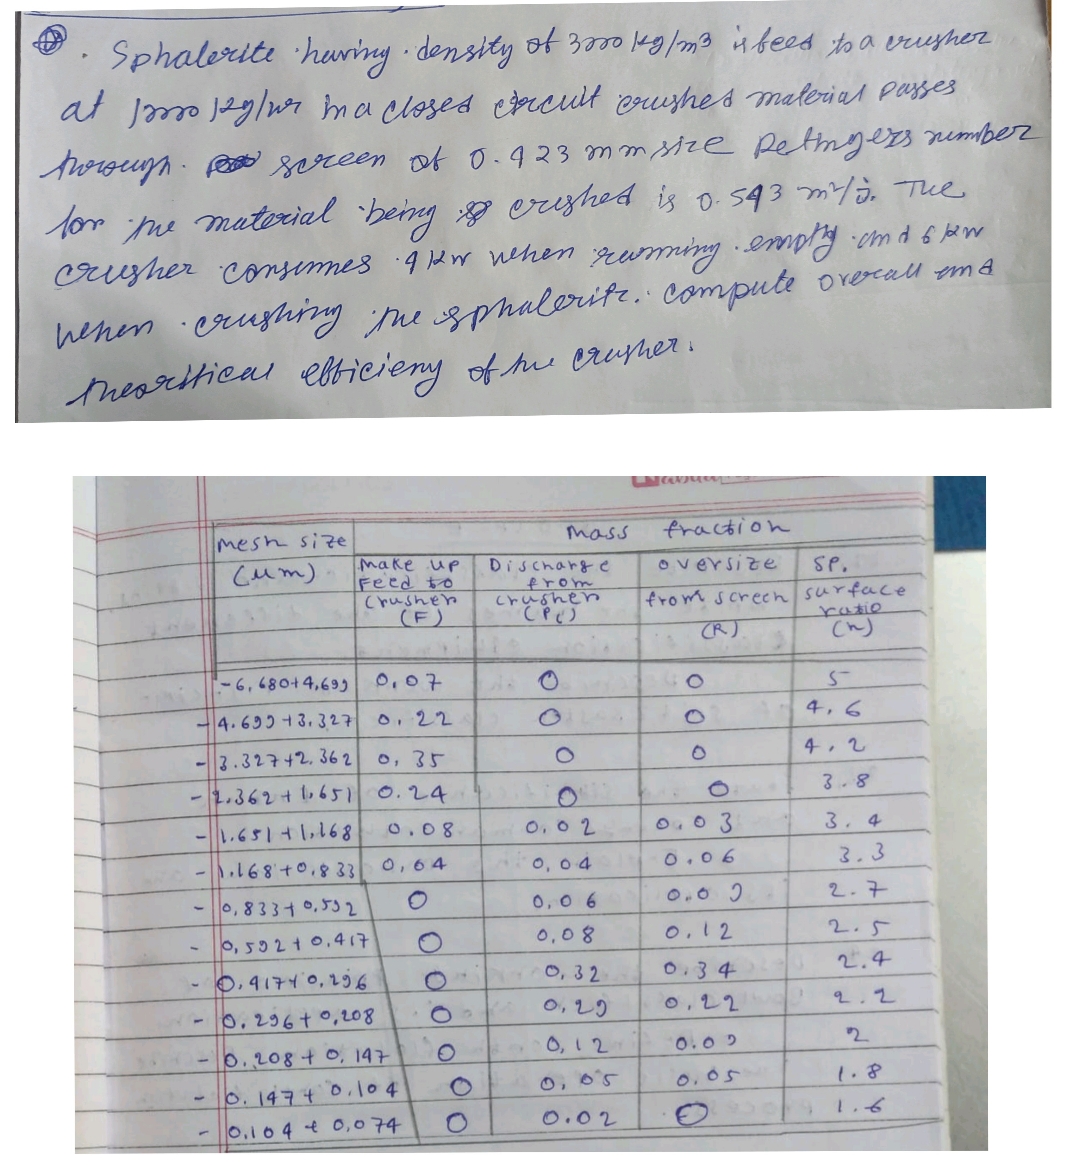 . Sphalerite having density of 3000 kg/m3 is feed to a crusher
at 1000 kg/hr in a closed circuit crushed material passes
through. screen of 0.423 mm size Rettingers number
for the material being crushed is 0.543 m²/j. The
crusher consumes 4 kW when running empty and 6 kW
when crushing the sphalerite. compute overall and
theoritical efficieny of the crusher.
mesh size
(um)
mass fraction
Make up Feed to crusher (F)
Discharge from crusher (Pc)
oversize from screen (R)
SP. surface ratio (n)
-6,680+4,699 0.07 0 0 5
-4.699+3.327 0.22 0 0 4.6
-3.327+2.362 0.35 0 0 4.2
-2.362+1.651 0.24 0 0 3.8
-1.651+1.168 0.08 0.02 0.03 3.4
-1.168+0.833 0.04 0.04 0.06 3.3
-0.833+0.592 0 0.06 0.09 2.7
-0.592+0.417 0 0.08 0.12 2.5
-0.417+0.296 0 0.32 0.34 2.4
-0.296+0.208 0 0.29 0.22 2.2
-0.208+0.147 0 0.12 0.09 2
-0.147+0.104 0 0.05 0.05 1.8
-0.104+0.074 0 0.02 0 1.6